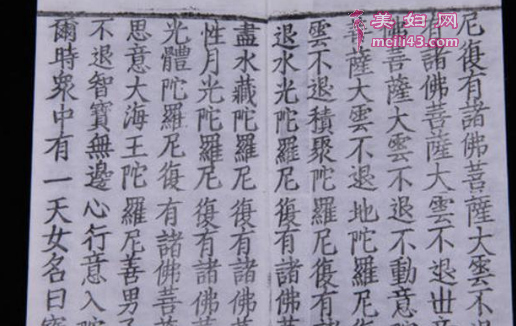 尼復有諸佛菩薩大雲不
有諸佛菩薩大雲不退世
佛菩薩大雲不退不動意
菩薩大雲不退地陀羅尼
雲不退積聚陀羅尼復有
退水光陀羅尼復有諸佛
盡水藏陀羅尼復有諸佛
性月光陀羅尼復有諸佛
光體陀羅尼復有諸佛菩
思意大海王陀羅尼善男
不退智寶無邊心行意入
爾時眾中有一天女名曰
美妇网
meili43.com